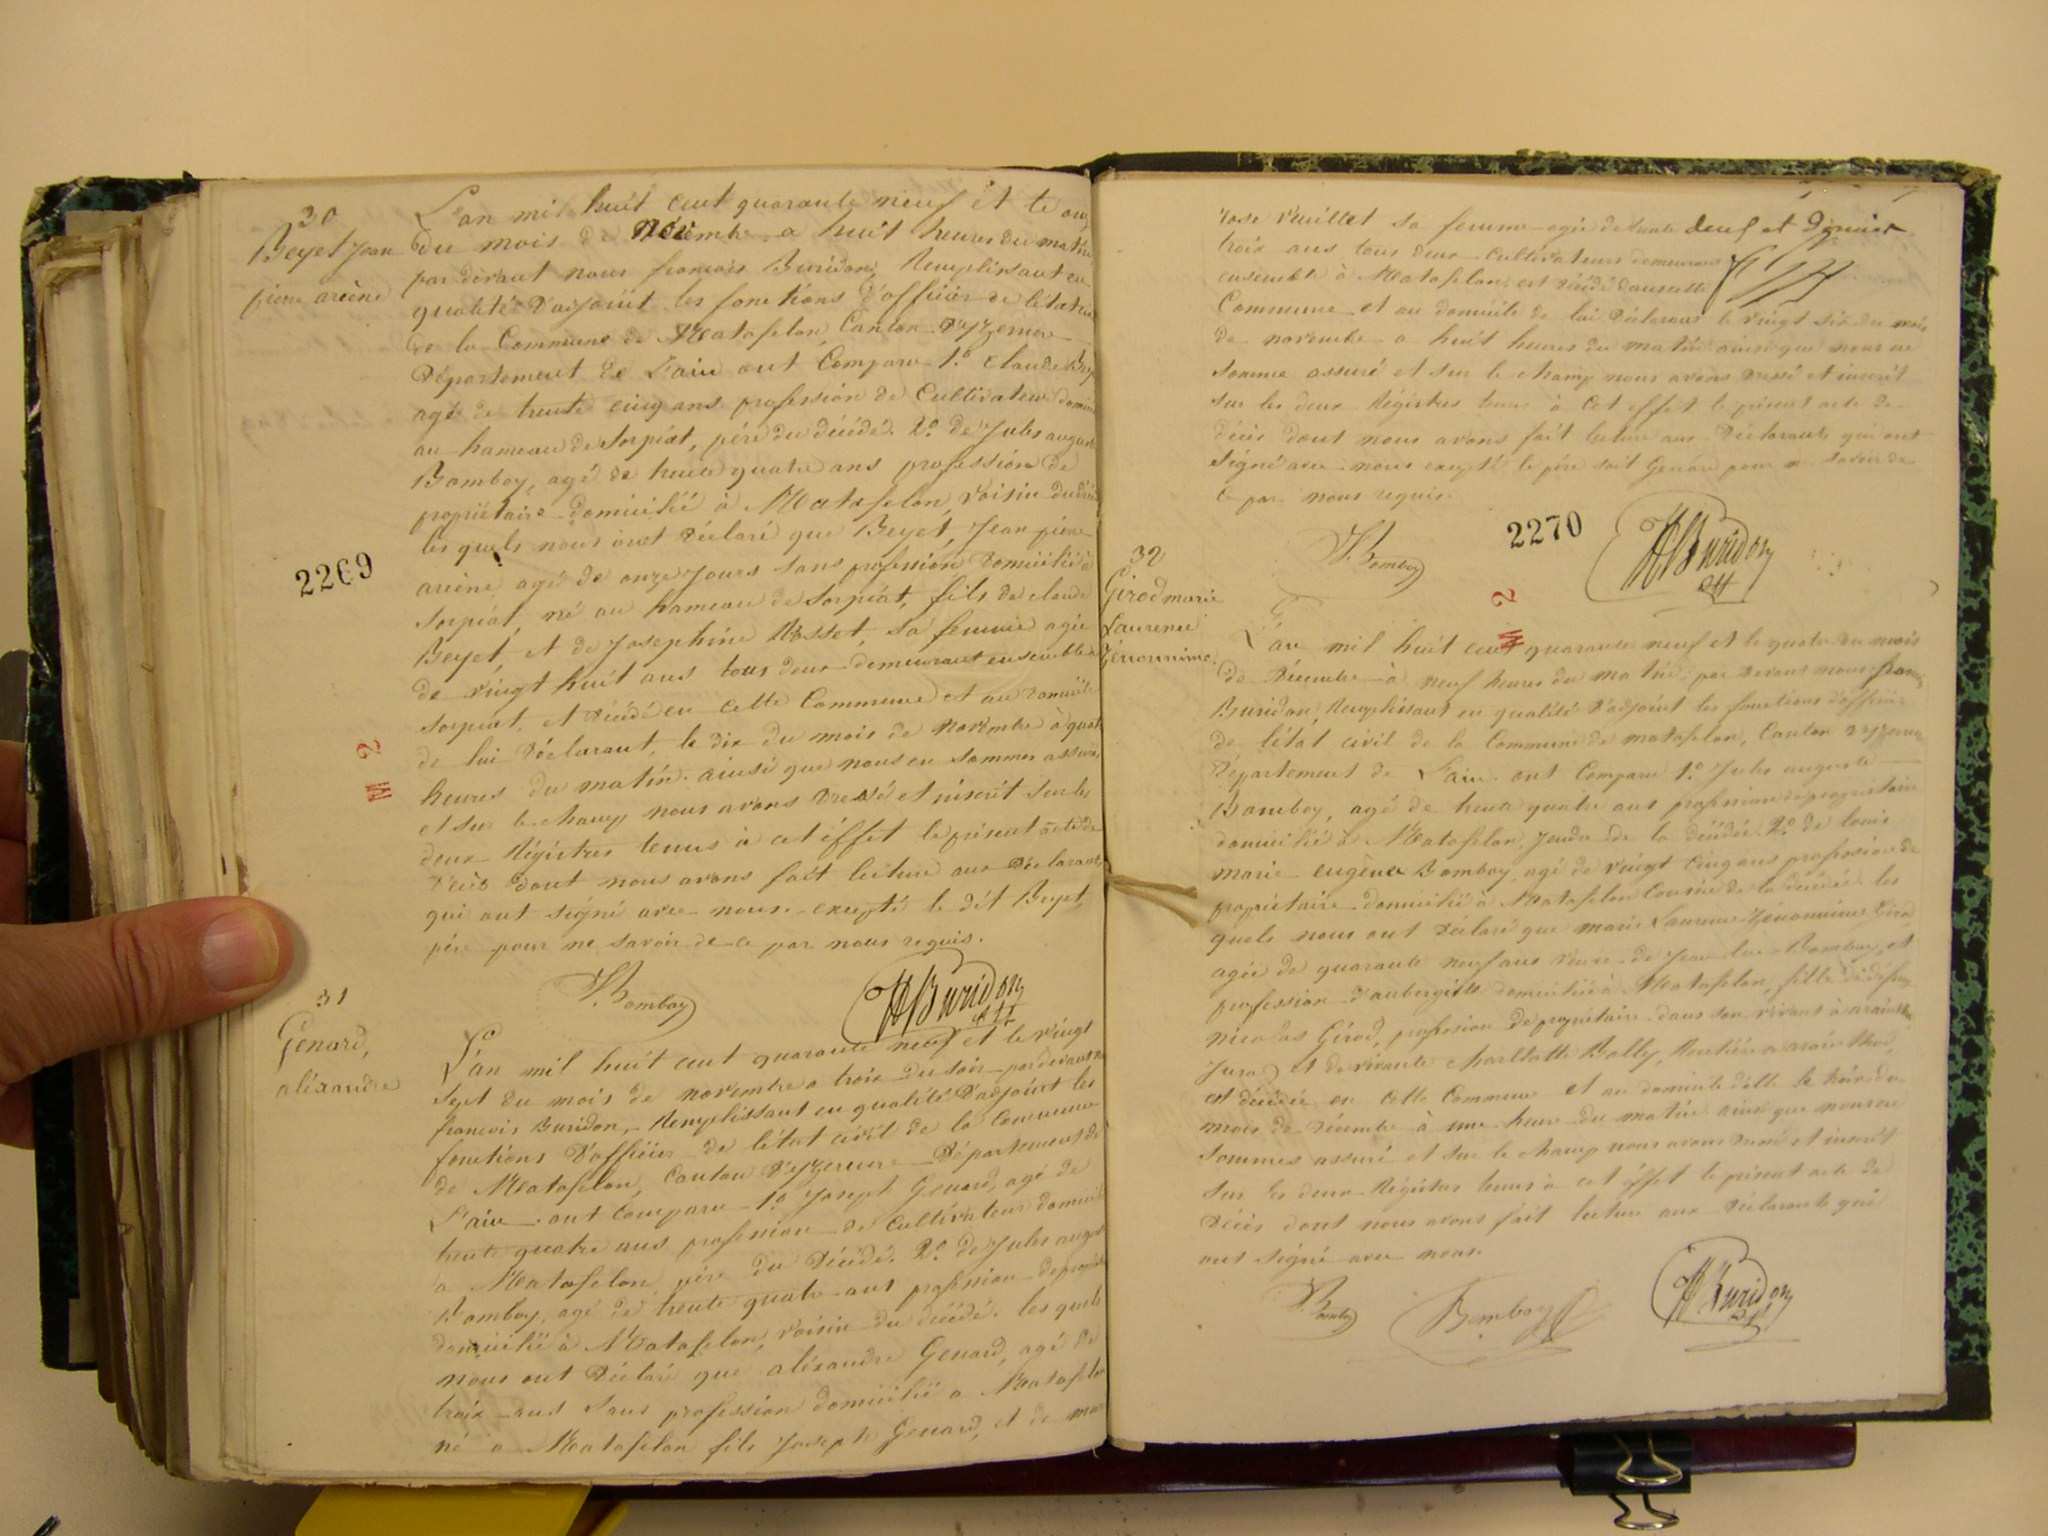 30
Beyet Jean
pierre arène
L'an mil huit cent quarante neuf et le onz
du mois de novembre a huit heures du matin
par devant nous francois Buridon, Remplissant en
qualité d'adjoint les fonctions d'officier de l'état civil
de la Commune de Matafelon, Canton d'yzernore
Département de L'ain ont Comparu 1.º Claude Beyet
agé de trente cinq ans profession de Cultivateur domici
au hameau de Sorpiat, père du décédé. 2.º de Jules auguste
Bomboy, agé de trente quatre ans profession de
propriétaire domicilié à Matafelon, voisin du décédé
les quels nous ont Déclaré que Beyet, Jean pierre
arène agé de onze Jours sans profession Domicilié à
Sorpiat, né au hameau de Sorpiat, fils de claude
Beyet, et de Josephine Rosset, sa femme agée
de vingt huit ans tous deux demeurant ensemble a
Sorpiat, et décédé en cette Commune et au domicile
de lui Déclarant, le dix du mois de novembre à quatr
heures du matin. ainsi que nous en sommes assuré,
et sur le champ nous avons dressé et inscrit sur les
deux Régistres tenus à cet éffet le présent acte de
décès dont nous avons fait lecture aux Déclarants
qui ont signé avec nous excepté le dit Beyet,
père pour ne savoir de ce par nous requis.
2269
2 M
J. Bomboy
F Buridon
adj
31
Génard,
aléxandre
L'an mil huit cent quarante neuf et le vingt
Sept du mois de novembre a trois du soir par devant nous
francois Buridon, Remplissant en qualité d'adjoint les
fonctions d'officier de l'état civil de la Commune
de Matafelon, Canton d'yzernore Département de
L'ain ont Comparu 1.º Joseph Genard, agé de
trente quatre ans profession de Cultivateur domicilié
a Matafelon père du Décédé. 2.º de Jules august
Bomboy, agé de trente quatre ans profession de propriét
domicilié à Matafelon, voisin du décédé. les quels
nous ont Déclaré que aléxandre Genard, agé de
trois ans Sans profession domicilié a Matafelon
né a Matafelon fils Joseph Genard, et de mar
rose Vuillet sa femme agée de trente
trois ans tous deux Cultivateurs demeurant
ensemble à Matafelon, est décédé dans cette
Commune et au domicile de lui Déclarant le vingt six du mois
de novembre a huit heures du matin ainsi que nous en
somme assuré et sur le champ nous avons dressé et inscrit
sur les deux Régistres tenus à cet effet le présent acte de
décès dont nous avons fait lecture aux Déclarants qui ont
signé avec nous excepté le père soit Genard pour ne savoir de
ce par nous requis.
J. Bomboy
2270
F Buridon
adj
2 M
32
Girod marie
Laurence
L'an mil huit cent quarante neuf et le quatre du mois
de Décembre à neuf heures du matin par devant nous francois
Buridon, Remplissant en qualité d'adjoint les fonctions d'officier
de l'état civil de la Commune de matafelon, Canton d'yzernore
Département de L'ain ont Comparu 1.º Jules auguste
Bomboy, agé de trente quatre ans profession de propriétaire
domicilié à Matafelon, Gendre de la décédée 2.º de louis
marie eugène Bomboy, agé de vingt cinq ans profession de
propriétaire domicilié à Matafelon Cousin de la décédée les
quels nous ont Déclaré que marie Laurence Girod
agée de quarante neuf ans veuve de Jean luc Bomboy, et
profession d'aubergiste domiciliée à Matafelon, fille de défun
nicolas Girod, profession de propriétaire dans son vivant à arainthod
Jura et de vivante Charllotte Bally, Rentière a arainthod,
est décédée en cette Commune et au domicile d'elle le trois du
mois de Décembre à une heure du matin ainsi que nous en
sommes assuré et sur le champ nous avons dressé et inscrit
sur les deux Régistres tenus à cet éffet le présent acte de
Décès dont nous avons fait lecture aux Déclarants qui
ont signé avec nous.
J. Bomboy
Bomboy
F Buridon
adj